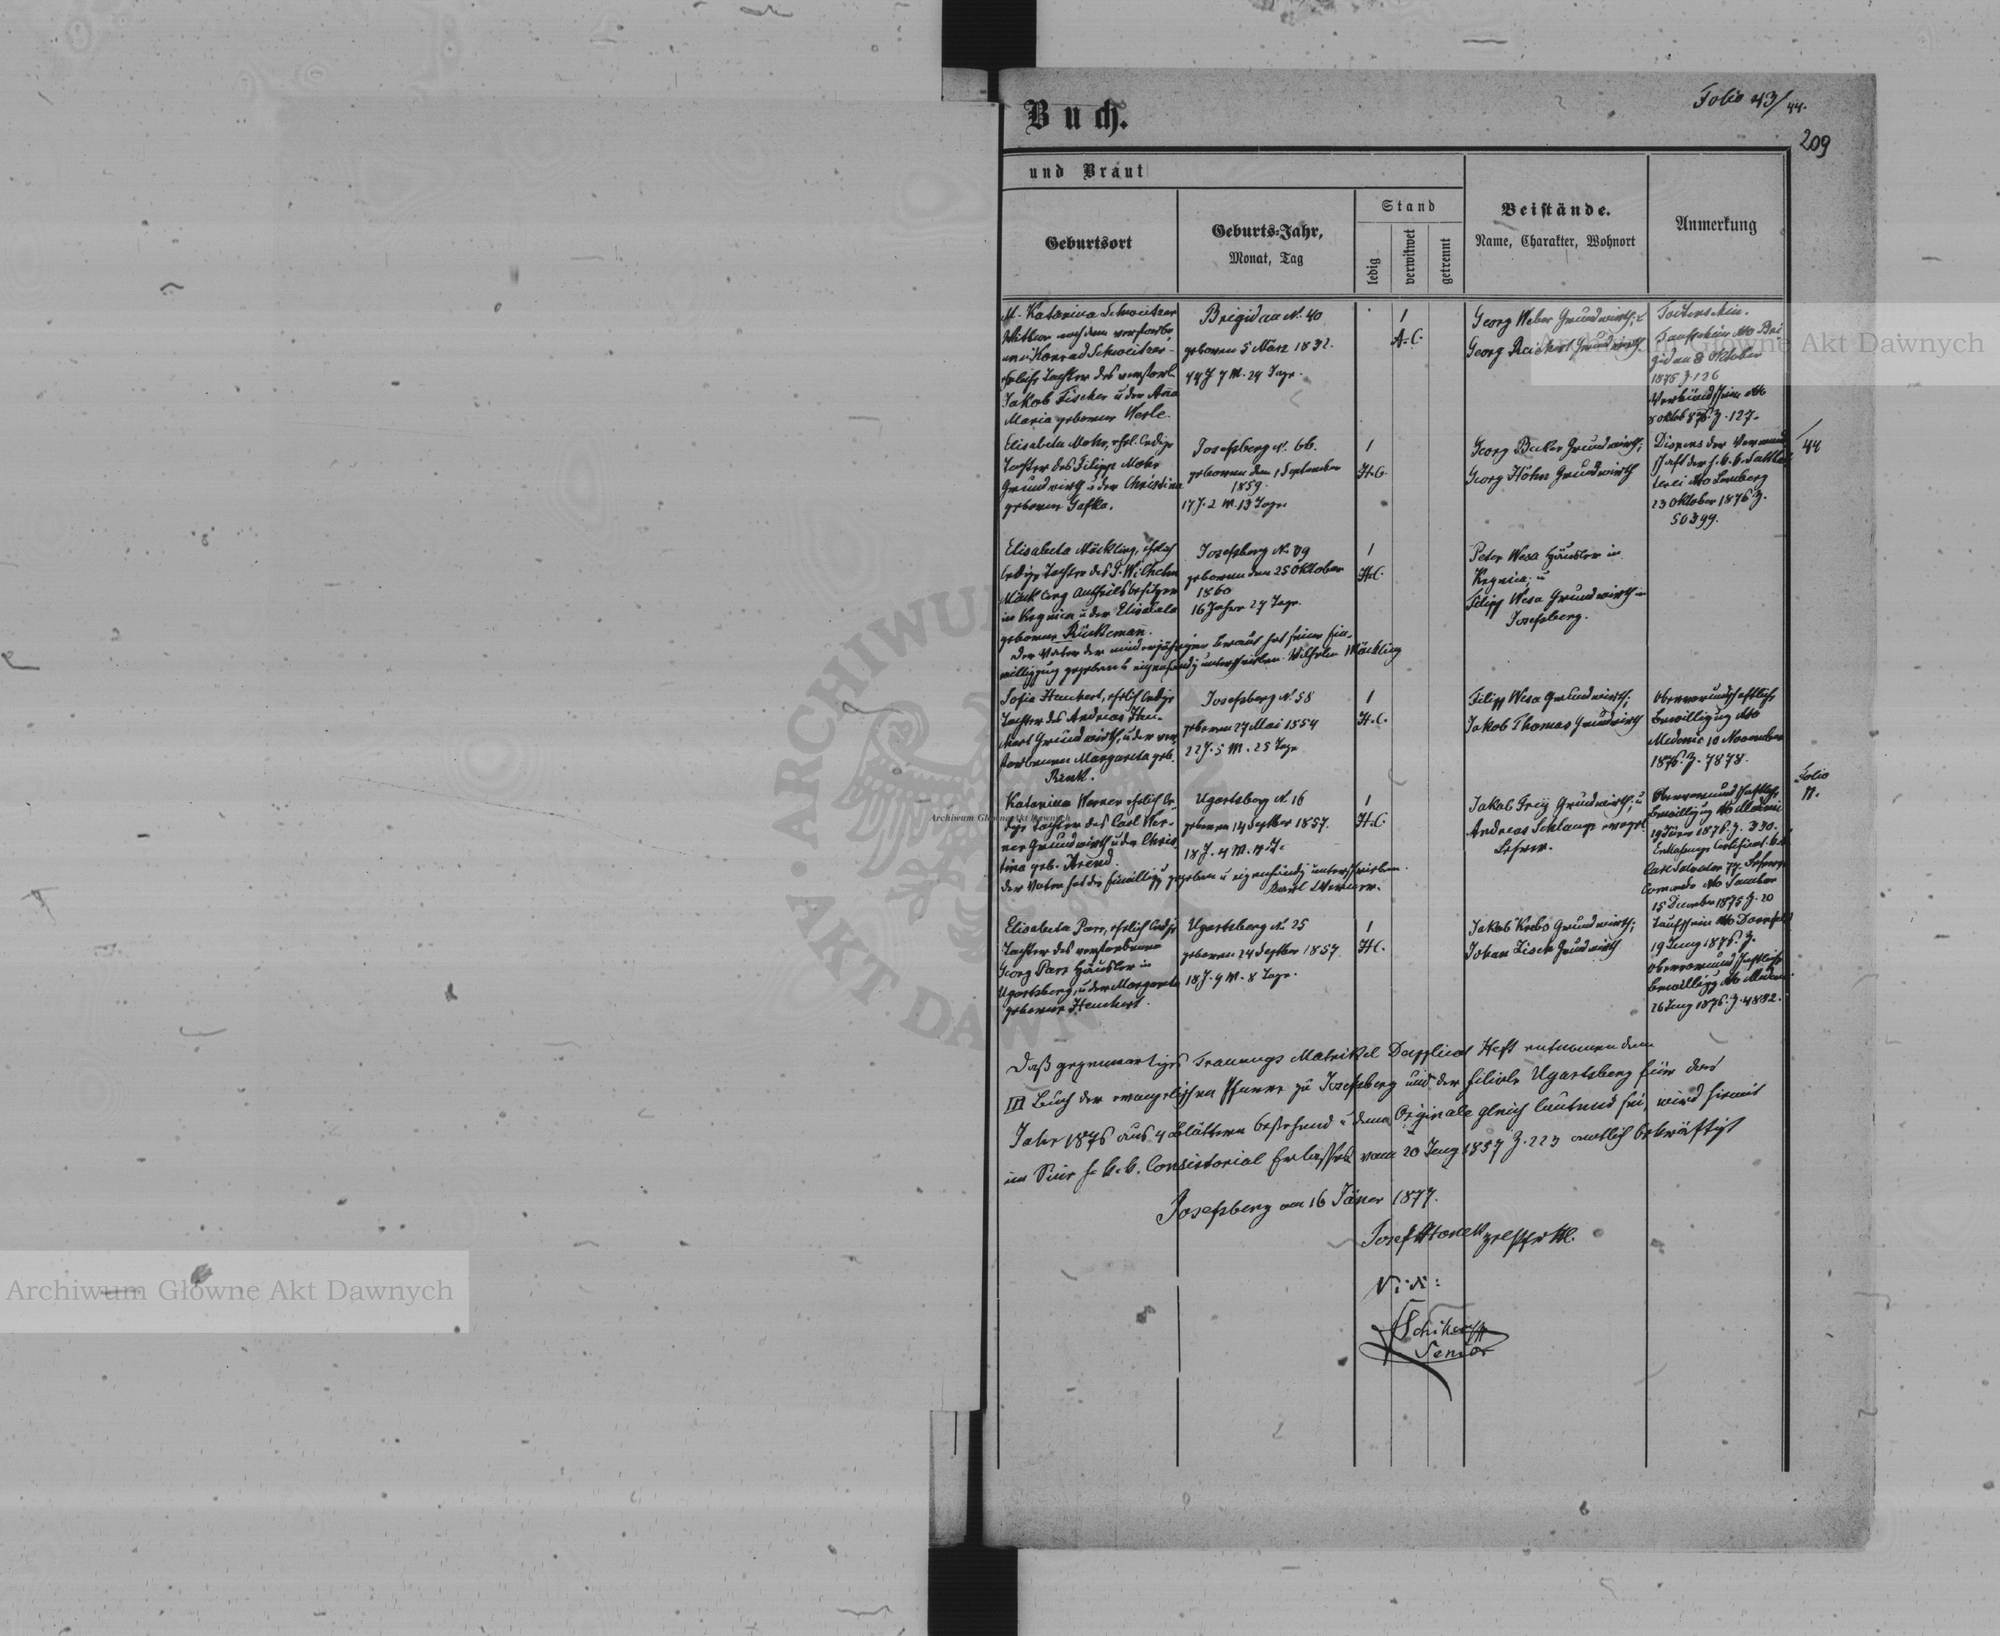 Folio 43/44.
Buch.
209
und Braut
Geburtsort
Geburts-Jahr,
Monat, Tag
Stand
ledig
verwitwet
getrennt
Beistände.
Name, Charakter, Wohnort
Anmerkung
M. Katarina Schweitzer
Wittwe nach dem verstorbe
nen Konrad Schweitzer
ehliche Tochter des verstorb.
Jakob Fischer u der Anna
Maria geborene Werle.
Brigidau N. 40
geboren 5 März 1832.
44 J 7 M. 24 Tage.
1
A.C.
Georg Weber Grundwirth; u
Georg Reichert Grundwirth
Todtenschein.
Taufschein dto Bri
gidau 8 Oktober
1876 Z. 126
Verkündschein dto
8 Oktob 876. Z. 127.
Elisabeta Mohr, ehl. ledige
Tochter des Filipp Mohr
Grundwirth u der Christina
geborene Gafka.
Josefsberg N. 66.
geboren den 1 September
1859.
17 J. 2 M. 13 Tage.
1
H.C.
Georg Becker Grundwirth;
Georg Höhn Grundwirth
Dispens der Verwand
schaft der h. k. k. Statthal
terei dto Lemberg
23 Oktober 1876 Z.
50399.
44
Elisabeta Möckling, ehlich
ledige Tochter des J. Wilhelm
Möckling Antheilsbesitzer
in Krynica u der Elisabeta
geborene
Der Vater der minderjährigen Braut hat seine Ein-
willigung gegeben u eigenhändig unterschrieben. Wilhelm Möckling
Josefsberg N. 79
geboren den 25 Oktober
1860
16 Jahre 27 Tage.
1
H.C.
Peter Wesa Häusler in
Krynica; u
Filipp Wesa Grundwirth in
Josefsberg.
Sofia Heuchert, ehlich ledige
Tochter des Andreas Heu-
chert Grundwirth, u der ver-
storbenen Margareta geb.
Rink.
Josefsberg N. 58
geboren 27 Mai 1854
22 J. 5 M. 25 Tage
1
H.C.
Filipp Wesa Grundwirth;
Jakob Thomas Grundwirth
Obervormundschaftliche
Bewilligung dto
Medenic 10 November
1876. Z. 7878.
Folio
11.
Katarina Werner ehlich le-
dige Tochter des Carl Wer-
ner Grundwirth u der Chris
tina geb. Arend.
Der Vater hat die Einwilligg gegeben u eigenhändig unterschrieben.
Karl Werner.
Ugartsberg N. 16
geboren 14 Septber 1857.
18 J. 4 M.
1
H.C.
Jakob Frey Grundwirth; u
Andreas Schlaupp evangel.
Lehrer.
Obervormundschaftliche
Bewilligung dto Medenic
19 Jäner 1876. Z. 330.
Entlassungs Certificat
Carl Salvator 77.
Comando dto Sambor
15 December 1875 Z. 20
Elisabeta Parr, ehlich ledige
Tochter des verstorbenen
Georg Parr Häusler in
Ugartsberg, u der Margareta
geborene Heuchert.
Ugartsberg N. 25
geboren 24 Septber 1857
18 J. 9 M. 8 Tage.
1
H.C.
Jakob Krebs Grundwirth;
Johan Zisch Grundwirth
Taufschein dto Dornfeld
19 Juny 1876. Z.
Obervormundschaftliche
Bewilligg dto Meden.
26 Juny 1876. Z. 4882.
Daß gegenwartiges Trauungs Matrikel Dupplicat Heft entnomen dem
III Buch der evangelischen Pfarre zu Josefsberg und der Filiale Ugartsberg für das
Jahr 1876 aus 4 Blättern bestehend u dem Originale gleich lautend sei, wird hiemit
im Sine h. k. k. Consistorial Erlasses vom 20 Juny 1857 Z. 223 amtlich bekräftigt
Josefsberg am 16 Jäner 1877.
Josef
Vidi:
Senior
ARCHIWUM
AKT DAWNYCH
Archiwum Główne Akt Dawnych
Archiwum Główne Akt Dawnych
Archiwum Główne Akt Dawnych